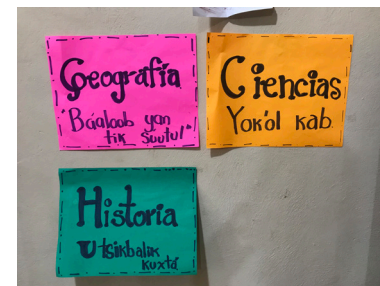 Geografía
"Báaloob yan
tik suutul"
Ciencias
Yok'ol kab.
Historia
U tsikbalik
kuxtá